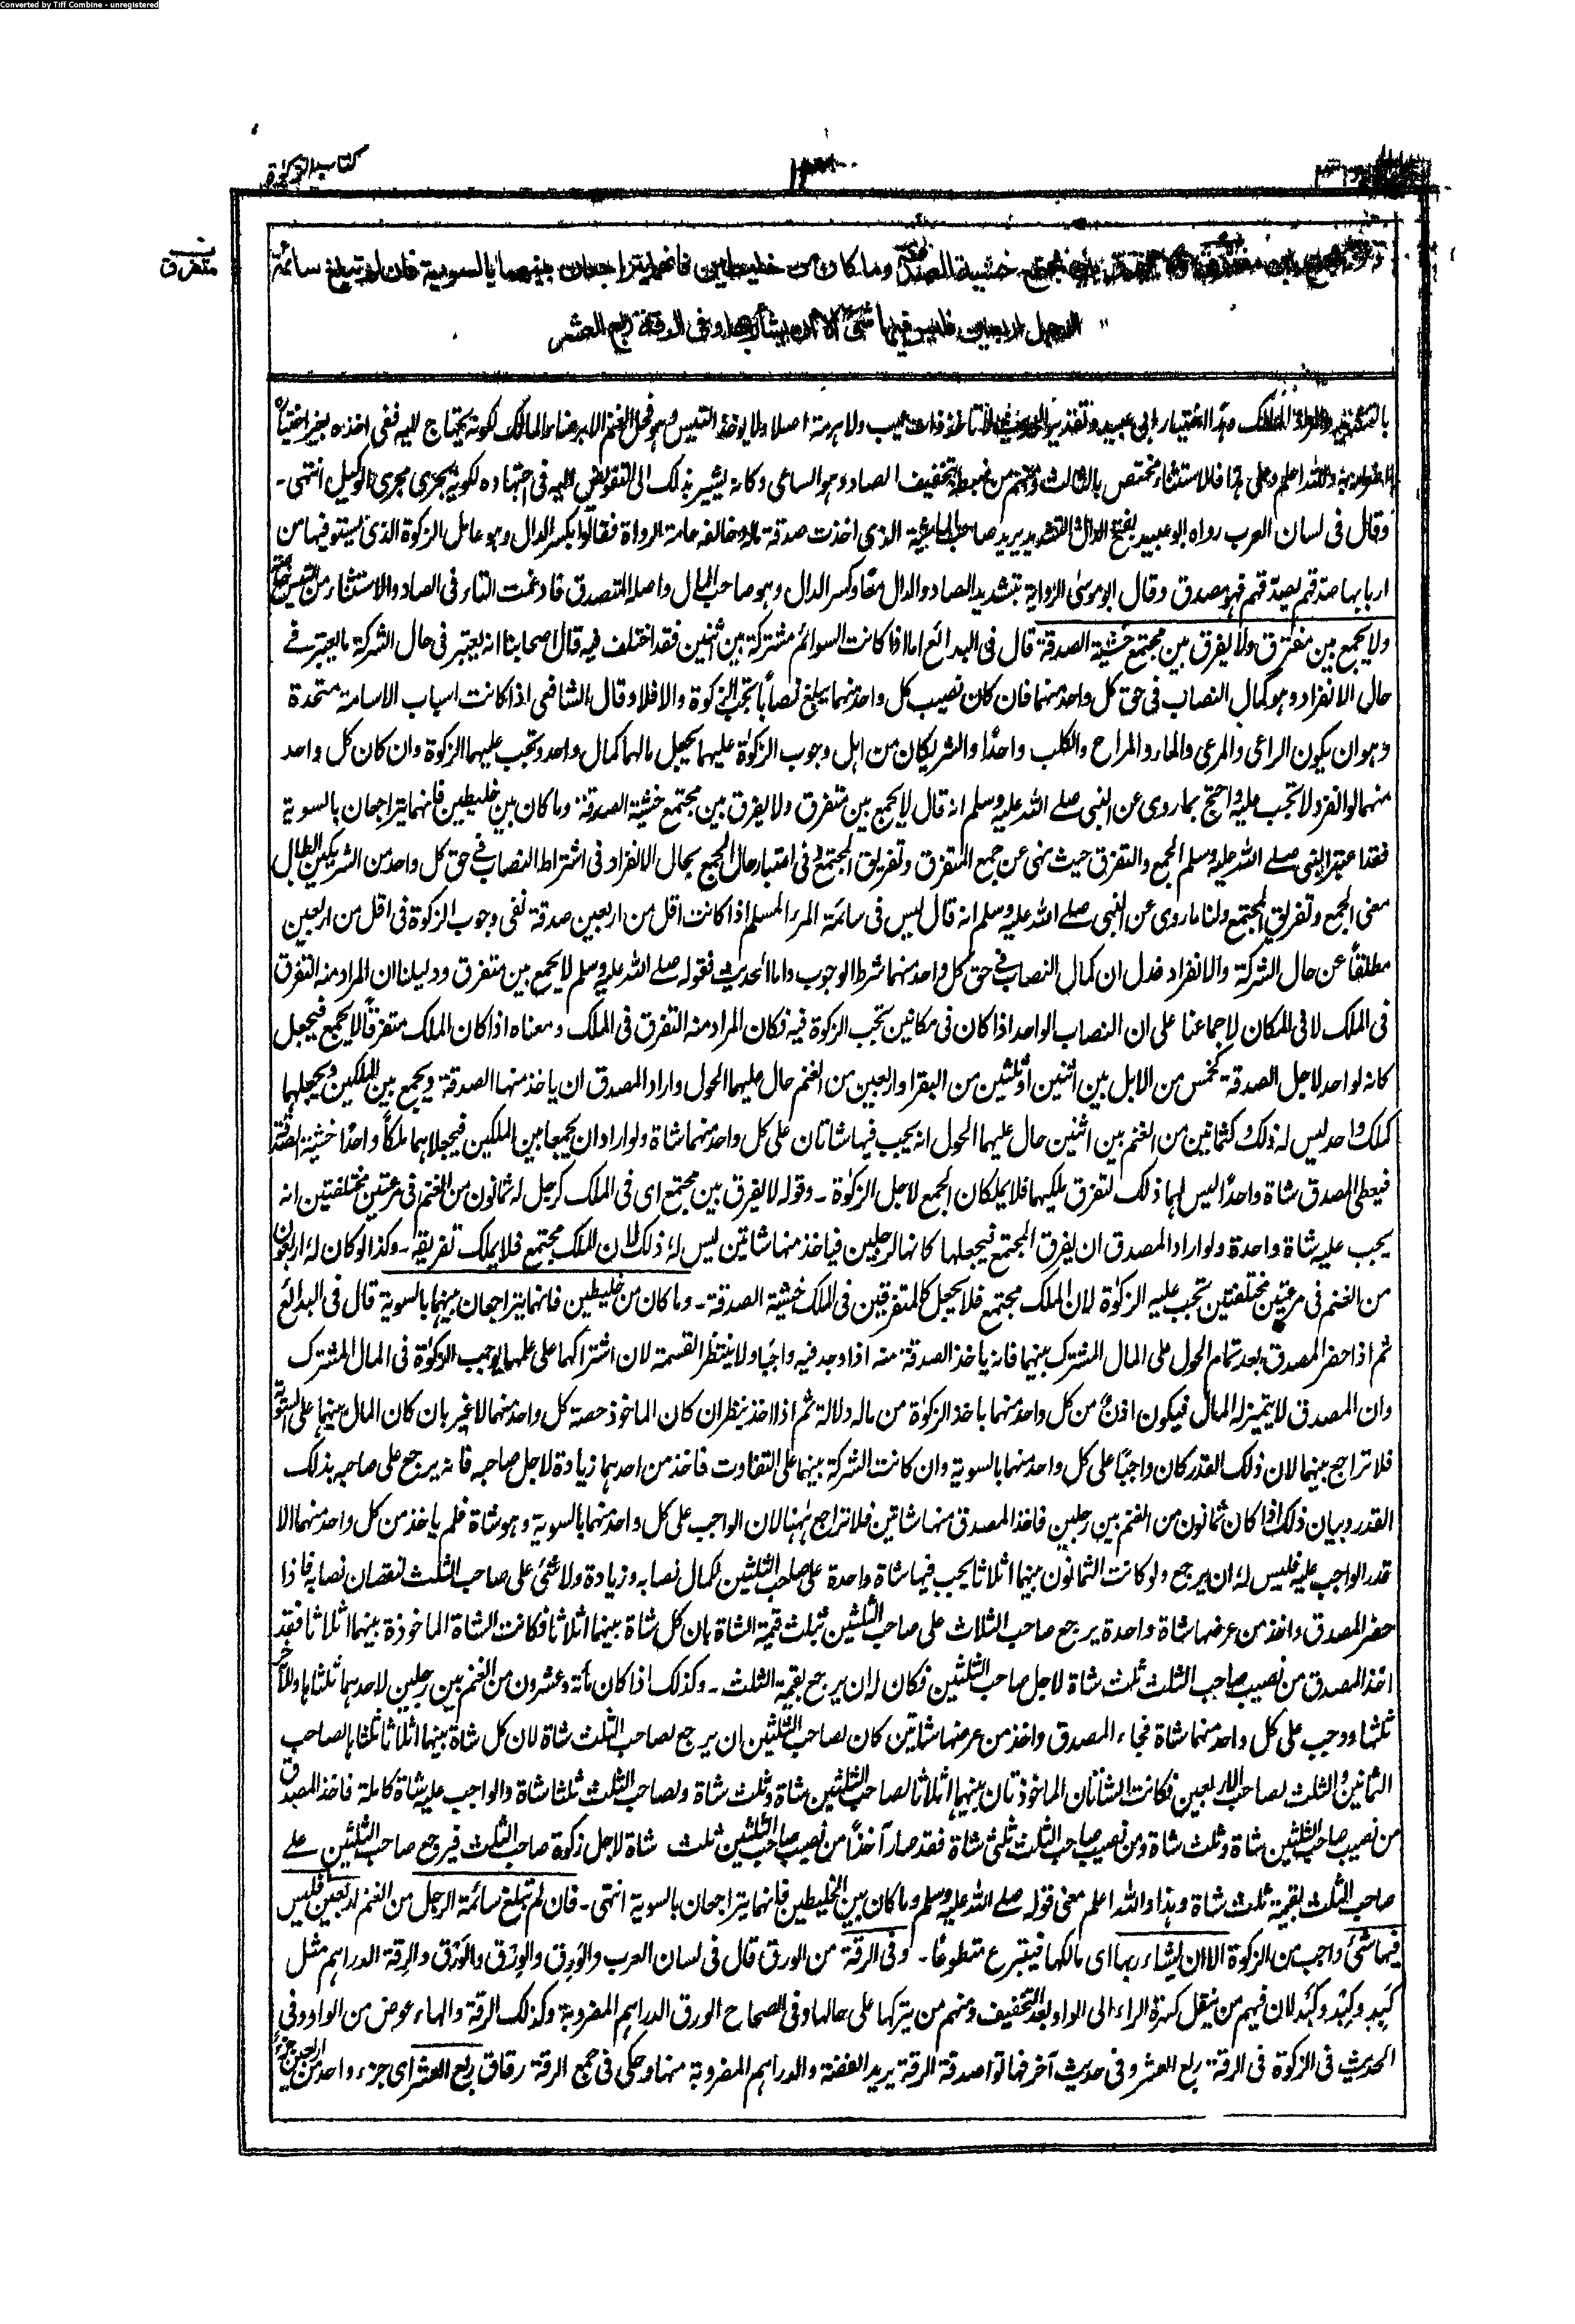 Converted by Tiff Combine - unregistered
كتاب الزكوة
متفرق
خشية الصدقة وما كان من خليطين فانهما يتراجعان بينهما بالسوية فان لم تبلغ سائمة
الرجل اربعين فليس فيها شئ الا ان يشاء ربها وفى الرقة ربع العشر
ولا هرمة اصلا ولا يؤخذ التيس وهو فحل الغنم الا برضاء المالك لكونه يحتاج اليه ففى اخذه بغير اختياره
والله اعلم وعلى هذا فالاستثناء مختص بالثالث ومنهم من ضبطه بتخفيف الصاد وهو الساعى وكانه يشير بذلك الى التفويض اليه فى اجتهاده لكونه يجرى مجرى الوكيل انتهى۔
وقال فى لسان العرب رواه ابو عبيد بفتح الدال والتشديد يريد صاحب الماشية الذى اخذت صدقة ماله وخالفه عامة الرواة فقالوا بكسر الدال وهو عامل الزكوة الذى يستوفيها من
اربابها صدقهم يصدقهم فهو مصدق وقال ابو موسى الرواية بتشديد الصاد والدال معًا وكسر الدال وهو صاحب المال واصله المتصدق فادغمت التاء فى الصاد والاستثناء من التيس خاصة
ولا يجمع بين مفترق ولا يفرق بين مجتمع خشية الصدقة قال فى البدائع اما اذا كانت السوائم مشتركة بين اثنين فقد اختلف فيه قال اصحابنا انه يعتبر فى حال الشركة ما يعتبر فے
حال الانفراد وهو كمال النصاب فى حق كل واحد منهما فان كان نصيب كل واحد منهما يبلغ نصابًا تجب الزكوة والا فلا وقال الشافعى اذا كانت اسباب الاسامة متحدة
وهو ان يكون الراعى والمرعى والماء والمراح والكلب واحدًا والشريكان من اهل وجوب الزكوٰة عليهما يجعل مالهما كمال واحد وتجب عليهما الزكوة وان كان كل واحد
منهما لو انفرد لا تجب عليه واحتج بما روى عن النبى صلے الله عليه وسلم انه قال لا يجمع بين متفرق ولا يفرق بين مجتمع خشية الصدقة وما كان بين خليطين فانهما يتراجعان بالسوية
فقد اعتبر النبى صلے الله عليه وسلم الجمع والتفرق حيث نهى عن جمع المتفرق وتفريق المجتمع وفى اعتبار حال الجمع بحال الانفراد فى اشتراط النصاب فے حق كل واحد من الشريكين ابطال
معنى الجمع وتفريق المجتمع ولنا ما روى عن النبى صلے الله عليه وسلم انه قال ليس فى سائمة المرء المسلم اذا كانت اقل من اربعين صدقة نفى وجوب الزكوة فى اقل من اربعين
مطلقًا عن حال الشركة والانفراد فدل ان كمال النصاب فے حق كل واحد منهما شرط الوجوب واما الحديث فقوله صلے الله عليه وسلم لا يجمع بين متفرق ودليلنا ان المراد منه التفرق
فى الملك لا فى المكان لاجماعنا على ان النصاب الواحد اذا كان فى مكانين تجب الزكوة فيه فكان المراد منه التفرق فى الملك ومعناه اذا كان الملك متفرقًا لا يجمع فيجعل
كانه لواحد لاجل الصدقة كخمس من الابل بين اثنين او ثلثين من البقر او اربعين من الغنم حال عليهما الحول واراد المصدق ان ياخذ منها الصدقة ويجمع بين الملكين ويجعلهما
كملك واحد ليس له ذلك وكثمانين من الغنم بين اثنين حال عليهما الحول انه يجب فيها شاتان على كل واحد منهما شاة ولو ارادا ان يجمعا بين الملكين فيجعلاهما ملكًا واحدًا خشية الصدقة
فيعطى المصدق شاة واحدًا ليس لهما ذلك لتفرق ملكيهما فلا يملكان الجمع لاجل الزكوٰة۔ وقوله لا يفرق بين مجتمع اى فى الملك كرجل له ثمانون من الغنم فى مرعتين مختلفتين انه
يجب عليه شاة واحدة ولو اراد المصدق ان يفرق المجتمع فيجعلها كانها لرجلين فياخذ منها شاتين ليس له ذلك لان الملك مجتمع فلا يملك تفريقه۔ وكذا لو كان له اربعون
من الغنم فى مرعيتين مختلفتين تجب عليه الزكوٰة لان الملك مجتمع فلا يجعل كالمتفرقين فى الملك خشية الصدقة۔ وما كان من خليطين فانهما يتراجعان بينهما بالسوية قال فى البدائع
ثم اذا حضر المصدق بعد تمام الحول على المال المشترك بينهما فانه ياخذ الصدقة منه اذا وجد فيه واجبًا ولا ينتظر القسمة لان اشتراكهما على علمهما بوجب الزكوٰة فى المال المشترك
وان المصدق لا يتميز له المال فيكون اذنٌ من كل واحد منهما باخذ الزكوٰة من ماله دلالة ثم اذا اخذ ينظر ان كان الماخوذ حصة كل واحد منهما لا غير بان كان المال بينهما على السوية
فلا تراجع بينهما لان ذلك القدر كان واجبًا على كل واحد منهما بالسوية وان كانت الشركة بينهما على التفاوت فاخذ من احدهما زيادة لاجل صاحبه فانه يرجع على صاحبه بذلك
القدر وبيان ذلك اذا كان ثمانون من الغنم بين رجلين فاخذ المصدق منها شاتين فلا تراجع ههنا لان الواجب على كل واحد منهما بالسوية وهو شاة فلم ياخذ من كل واحد منهما الا
قدر الواجب عليه فليس له ان يرجع ولو كانت الثمانون بينهما اثلاثا يجب فيها شاة واحدة على صاحب الثلثين لكمال نصابه وزيادة ولا شئ على صاحب الثلث لنقصان نصابه فاذا
حضر المصدق واخذ من عرضها شاة واحدة يرجع صاحب الثلاث على صاحب الثلثين بثلث قيمة الشاة بان كل شاة بينهما اثلاثا فكانت الشاة الماخوذة بينهما اثلاثا فقد
اخذ المصدق من نصيب صاحب الثلث ثلث شاة لاجل صاحب الثلثين فكان له ان يرجع بقيمة الثلث۔ وكذلك اذا كان مأة وعشرون من الغنم بين رجلين لاحدهما ثلثاها وللآخر
ثلثها ووجب على كل واحد منهما شاة فجاء المصدق واخذ من عرضها شاتين كان لصاحب الثلثين ان يرجع لصاحب الثلث شاة لان كل شاة بينهما اثلاثا ثلثاها لصاحب
الثمانين والثلث لصاحب الاربعين فكانت الشاتان الماخوذتان بينهما اثلاثا لصاحب الثلثين شاة وثلث شاة ولصاحب الثلث ثلثا شاة والواجب عليه شاة كاملة فاخذ المصدق
من نصيب صاحب الثلثين شاة وثلث شاة ومن نصيب صاحب الثلث ثلثى شاة فقد صار آخذًا من نصيب صاحب الثلثين ثلث شاة لاجل زكوة صاحب الثلث فيرجع صاحب الثلثين علے
صاحب الثلث بقيمة ثلث شاة وهذا والله اعلم معنى قوله صلے الله عليه وسلم وما كان بين الخليطين فانهما يتراجعان بالسوية انتهى۔ فان لم تبلغ سائمة الرجل من الغنم اربعين فليس
فيها شئ واجب من الزكوة الا ان يشاء ربها اى مالكها فيتبرع متطوعًا۔ وفى الرقة من الورق قال فى لسان العرب والوَرِق والوِرْق والوَرْق والرِقة الدراهم مثل
كَبِد وكِبْد وكَبْد لان فيهم من ينقل كسرة الراء الى الواو بعد التخفيف ومنهم من يتركها على حالها وفى الصحاح الورق الدراهم المضروبة وكذلك الرقة والهاء عوض من الواو وفى
الحديث فى الزكوة فى الرقة ربع العشر وفى حديث آخر فهاتوا صدقة الرقة يريد الفضة والدراهم المضروبة منها وحكى فى جمع الرقة رقاق ربع العشر اى جزء واحد من اربعين جزءً